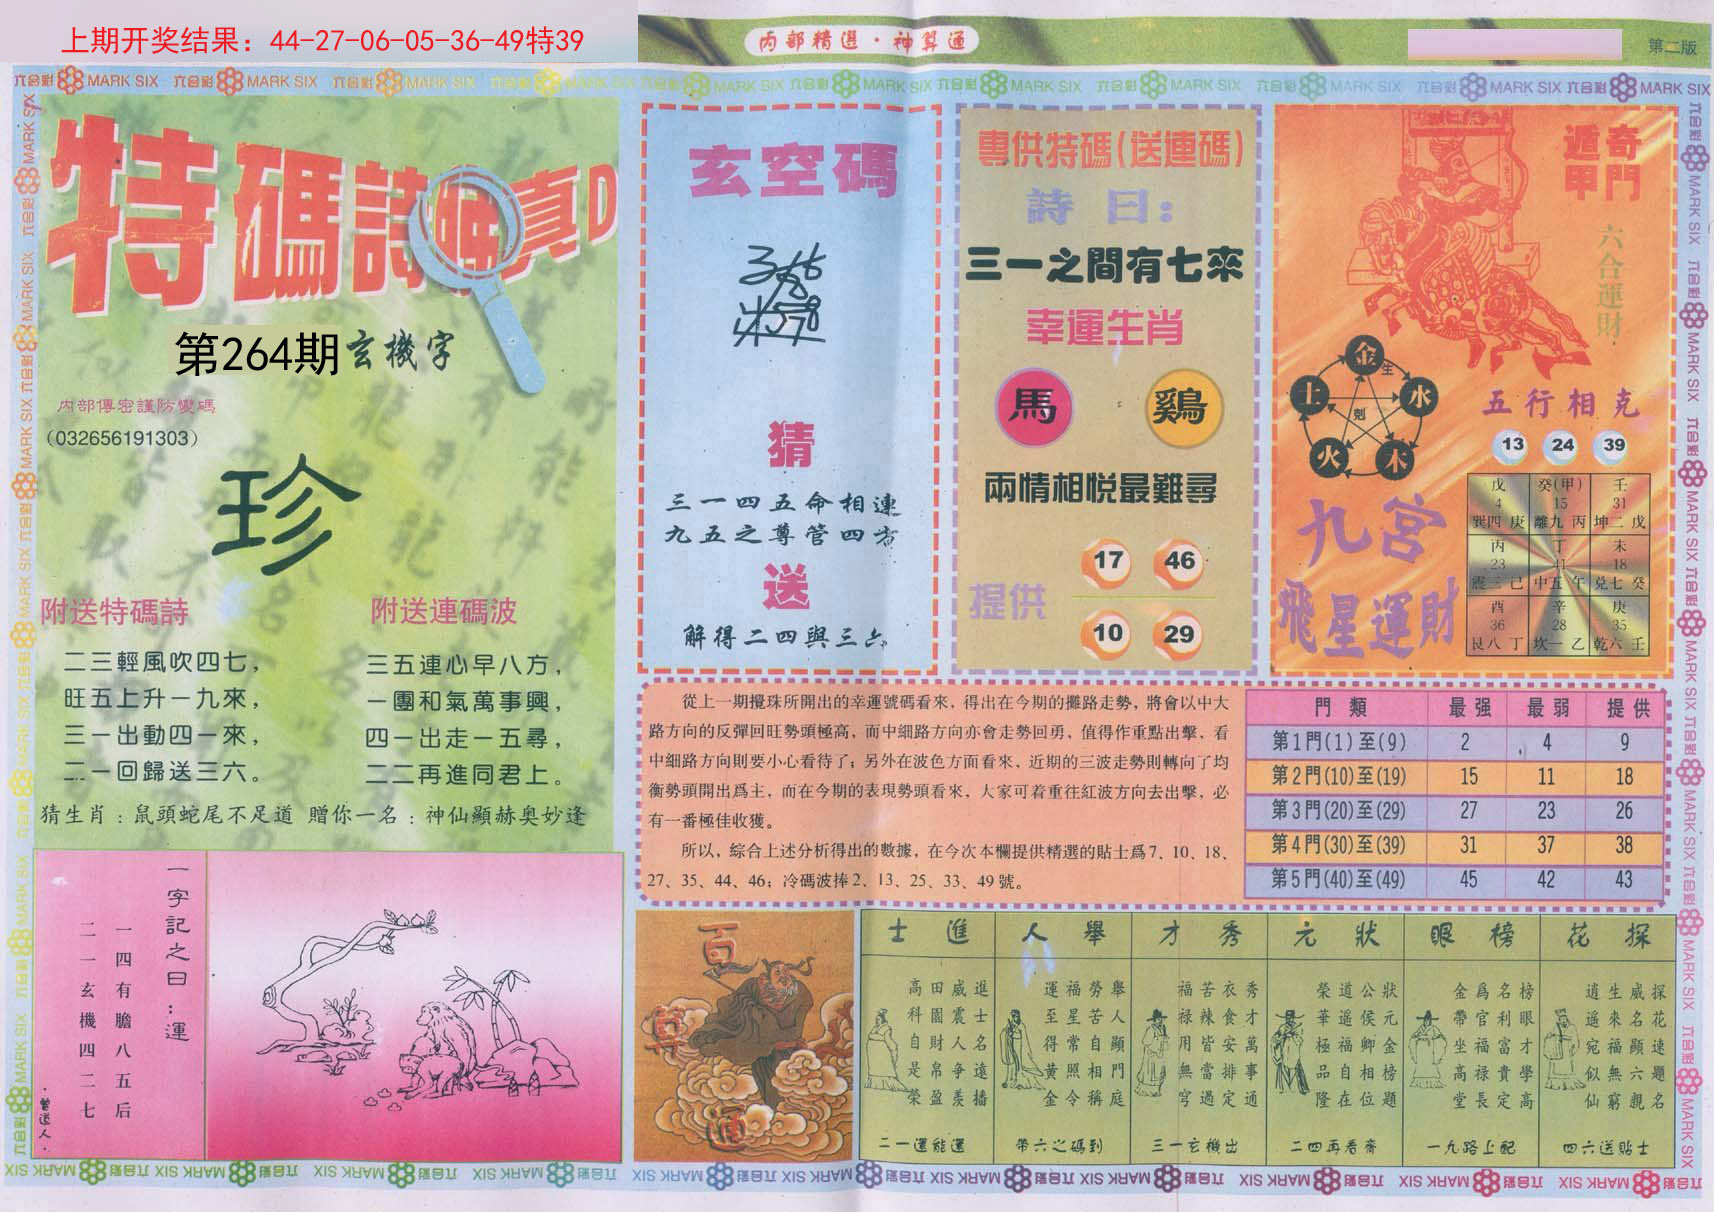 上期开奖结果：44-27-06-05-36-49特39
内部精選·神算通
第二版
特碼詩
真D
第264期玄機字
内部傳密謹防變碼
（032656191303）
珍
附送特碼詩
二三輕風吹四七，
旺五上升一九來，
三一出動四一來，
二一回歸送三六。
附送連碼波
三五連心早八方，
一團和氣萬事興，
四一出走一五尋，
二二再進同君上。
猜生肖：鼠頭蛇尾不足道 贈你一名：神仙顯赫奥妙逢
一字記之曰：運
一四有膽八五后
二一玄機四二七
曾道人
玄空碼
猜
三一四五命相連
九五之尊管四方
送
解得二四與三六
專供特碼(送連碼)
詩曰：
三一之間有七來
幸運生肖
馬：鷄
兩情相悦最難尋
提供
17 46
10 29
奇門
遁甲
六合運財
金
生
水
木
火
土
剋
五行相克
13 24 39
九宮
飛星運財
戊 癸(甲) 壬
4 15 31
巽四 庚 離九 丙 坤二 戊
丙 丁 未
23 41 18
震三 己 中五 午 兑七 癸
酉 辛 庚
36 28 35
艮八 丁 坎一 乙 乾六 壬
從上一期攪珠所開出的幸運號碼看來，得出在今期的攤路走勢，將會以中大
路方向的反彈回旺勢頭極高，而中細路方向亦會走勢回勇，值得作重點出擊，看
中細路方向則要小心看待了；另外在波色方面看來，近期的三波走勢則轉向了均
衡勢頭開出爲主，而在今期的表現勢頭看來，大家可着重往紅波方向去出擊，必
有一番極佳收獲。
所以，綜合上述分析得出的數據，在今次本欄提供精選的貼士爲7、10、18、
27、35、44、46；冷碼波捧2、13、25、33、49號。
門類 最强 最弱 提供
第1門(1)至(9) 2 4 9
第2門(10)至(19) 15 11 18
第3門(20)至(29) 27 23 26
第4門(30)至(39) 31 37 38
第5門(40)至(49) 45 42 43
百算通
士進
進士名遠播
威震人争羡
田園財帛盈
高科自是榮
二一運能運
人舉
舉人顯門庭
勞苦自相稱
福星常照令
運至得黄金
帶六之碼到
才秀
秀才萬事通
衣食安排定
苦辣皆當過
福禄用無穹
三一玄機出
元狀
狀元金榜題
公侯卿相位
道遥福自在
榮華極品隆
二四再看齊
眼榜
榜眼才學高
名利富貴定
爲官福禄長
金帶坐高堂
一九路上配
花探
探花速題名
威名顯六親
生來福無窮
逍遥宛似仙
四六送貼士
六合彩 MARK SIX